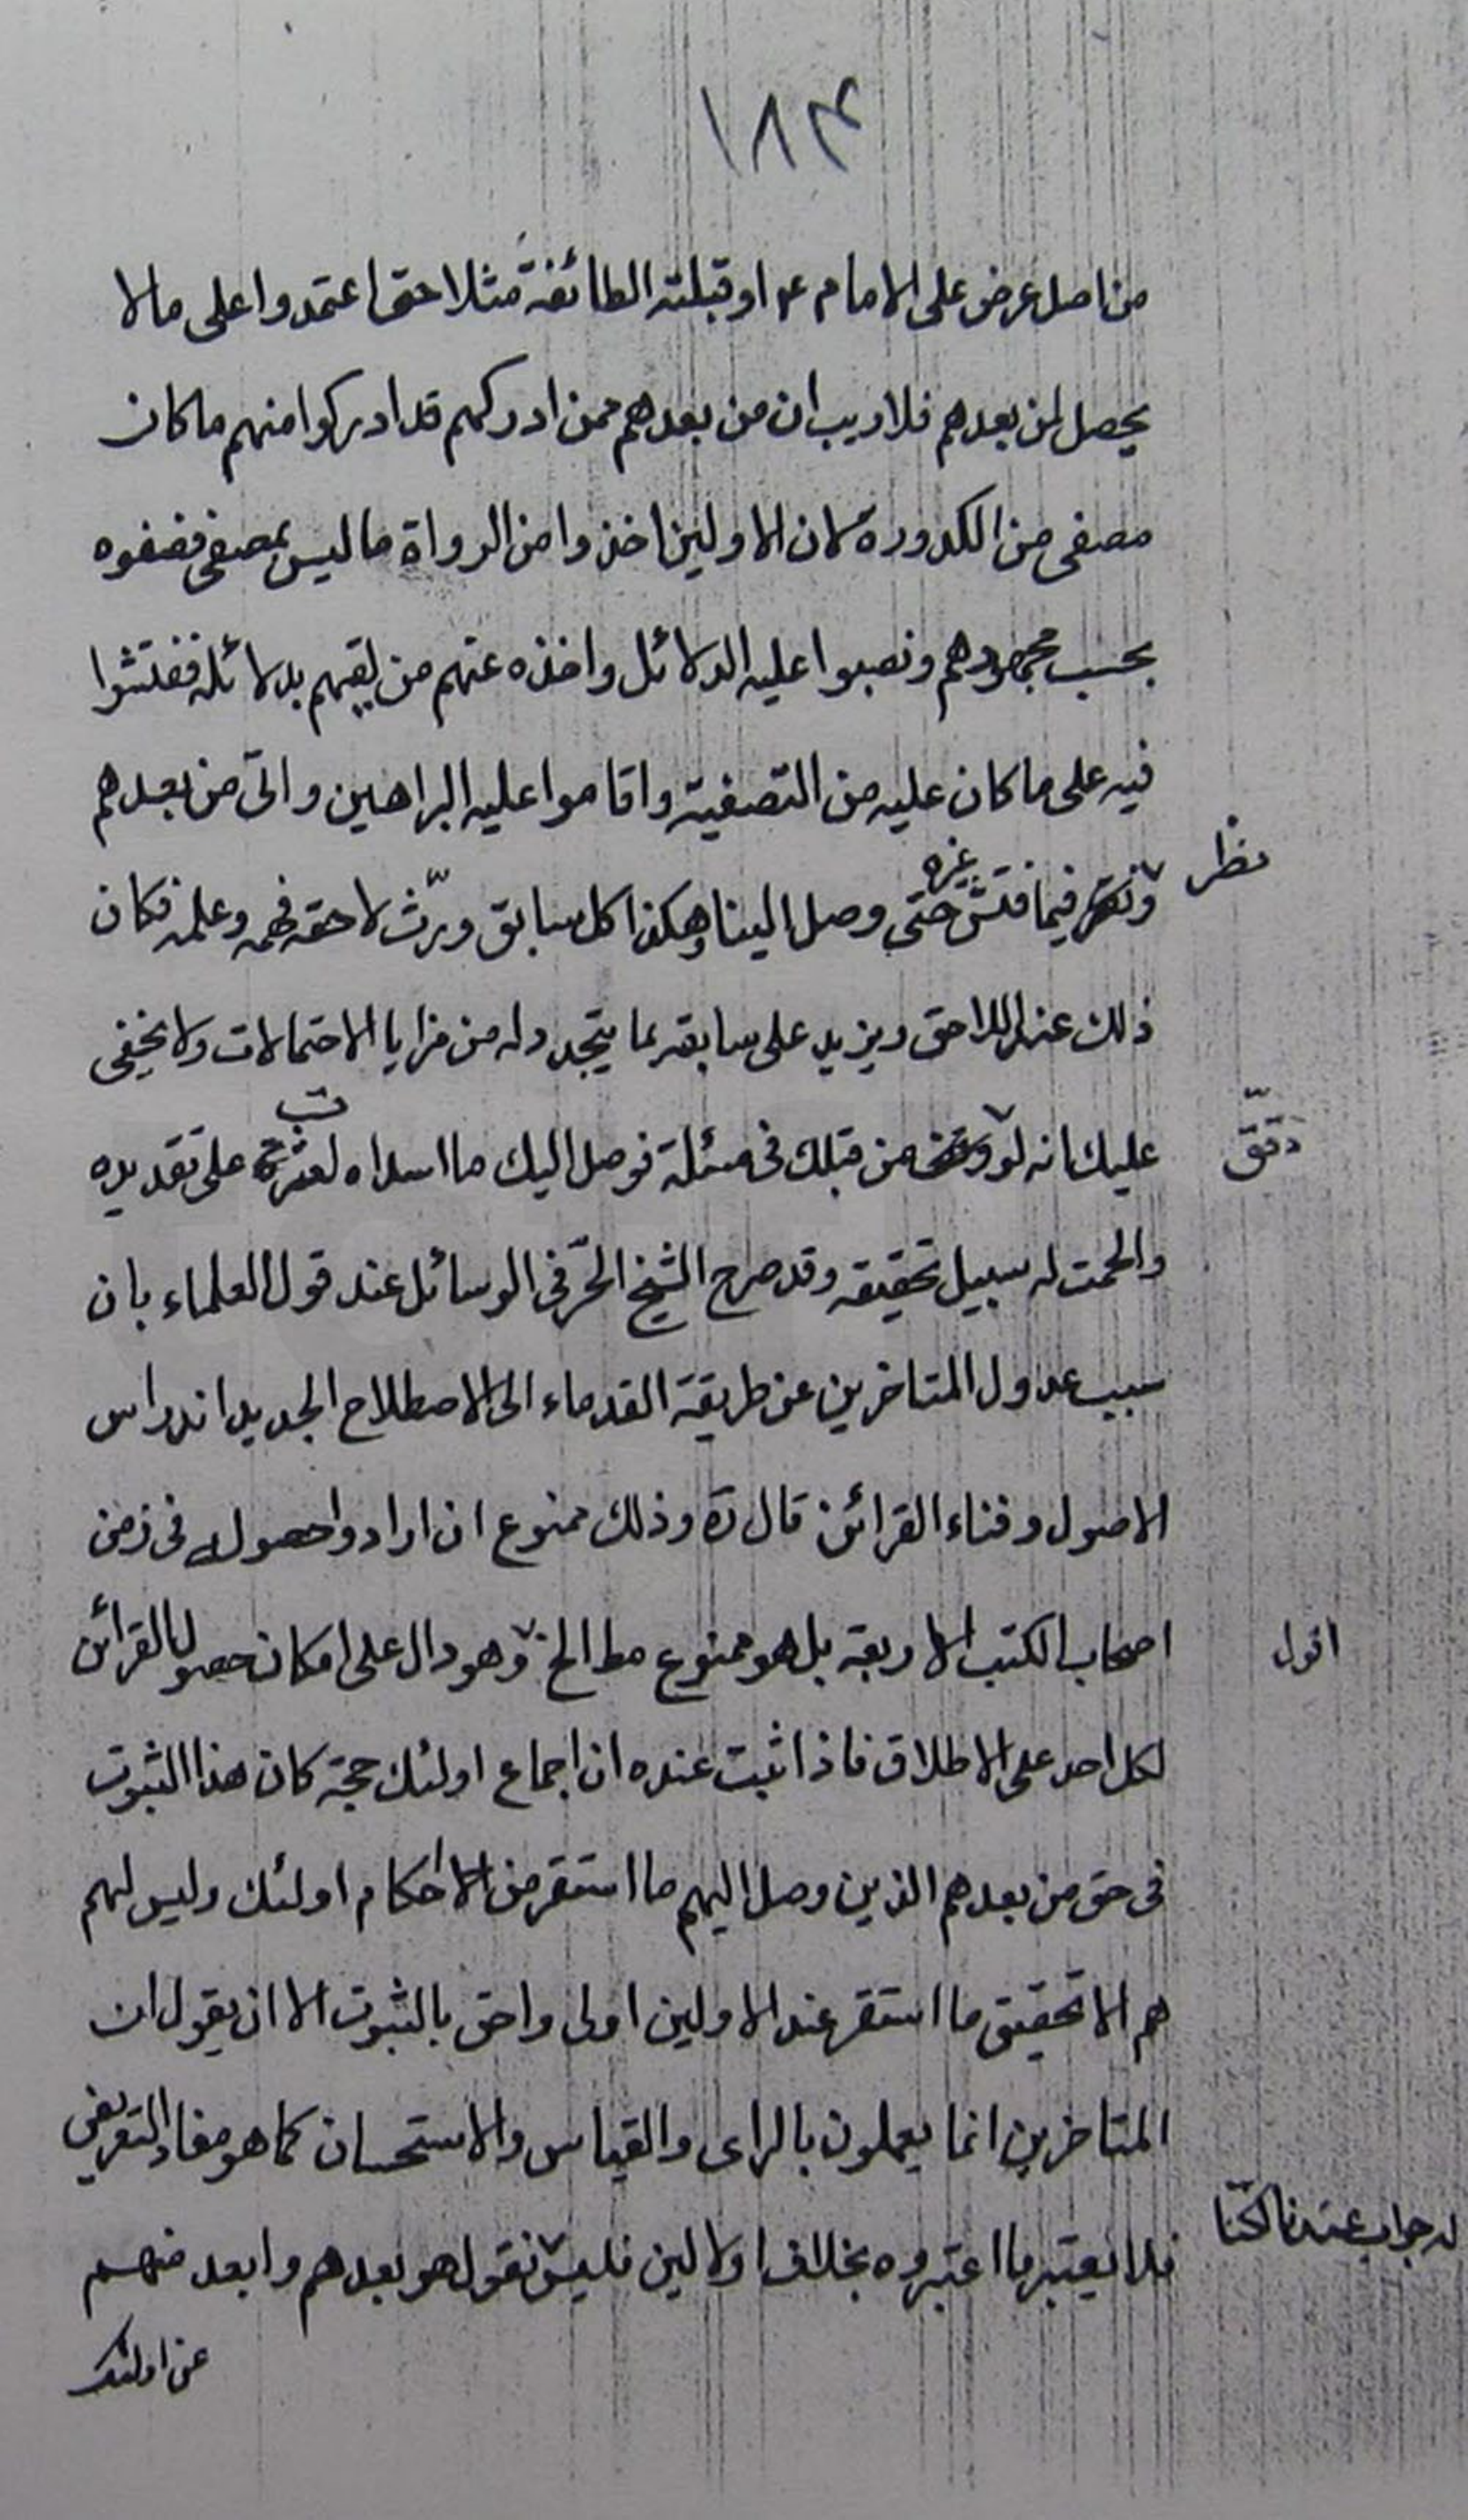 ١٨٤
من اصل عرض على الامام ع او قبلته الطائفة مثلا حتى اعتمدوا على ما لا
يحصل لمن بعدهم فلا ريب ان من بعدهم ممن ادركهم قد ادركوا منهم ما كان
مصفى من الكدورة لان الاولين اخذوا من الرواة ما ليس بمصفى فصفوه
بحسب مجهودهم و نصبوا عليه الدلائل واخذه عنهم من لقيهم بدلائله ففتشوا
فيه على ما كان عليه من التصفية واقاموا عليه البراهين واتى من بعدهم
ونظر فيما فتش غيره حتى وصل الينا وهكذا كل سابق ورّث لاحقه فهمه وعلمه فكان
نظر
ذلك عند اللاحق ويزيد على سابقه بما يتجدد له من مزايا الاحتمالات ولا يخفى
عليك انه لو من قبلك فى مسئلة فوصل اليك ما اسداه لعثرت على تقديره
دقّق
والحمت له سبيل تحقيقه وقد صرح الشيخ الحرّ فى الوسائل عند قول العلماء بان
سبب عدول المتاخرين عن طريقة القدماء الى الاصطلاح الجديد اندراس
الاصول و فناء القرائن قال ره وذلك ممنوع ان ارادوا حصوله فى زمن
اصحاب الكتب الاربعة بل هو ممنوع مط الخ وهو دال على امكان حصول القرائن
اقول
لكل احد على الاطلاق فاذا ثبت عنده ان اجماع اولئك حجة كان هذا الثبوت
فى حق من بعدهم الذين وصل اليهم ما استقر من الاحكام اولئك وليس لهم
هم الا تحقيق ما استقر عند الاولين اولى واحق بالثبوت الا ان يقول ان
المتاخرين انما يعملون بالراى والقياس والاستحسان كما هو مفاد التعريض
فلا يعتبر ما اعتبروه بخلاف اولالين فليس نقول هو بعدهم وابعد منهم
له جواب عندنا لكنّا
عن اولئك